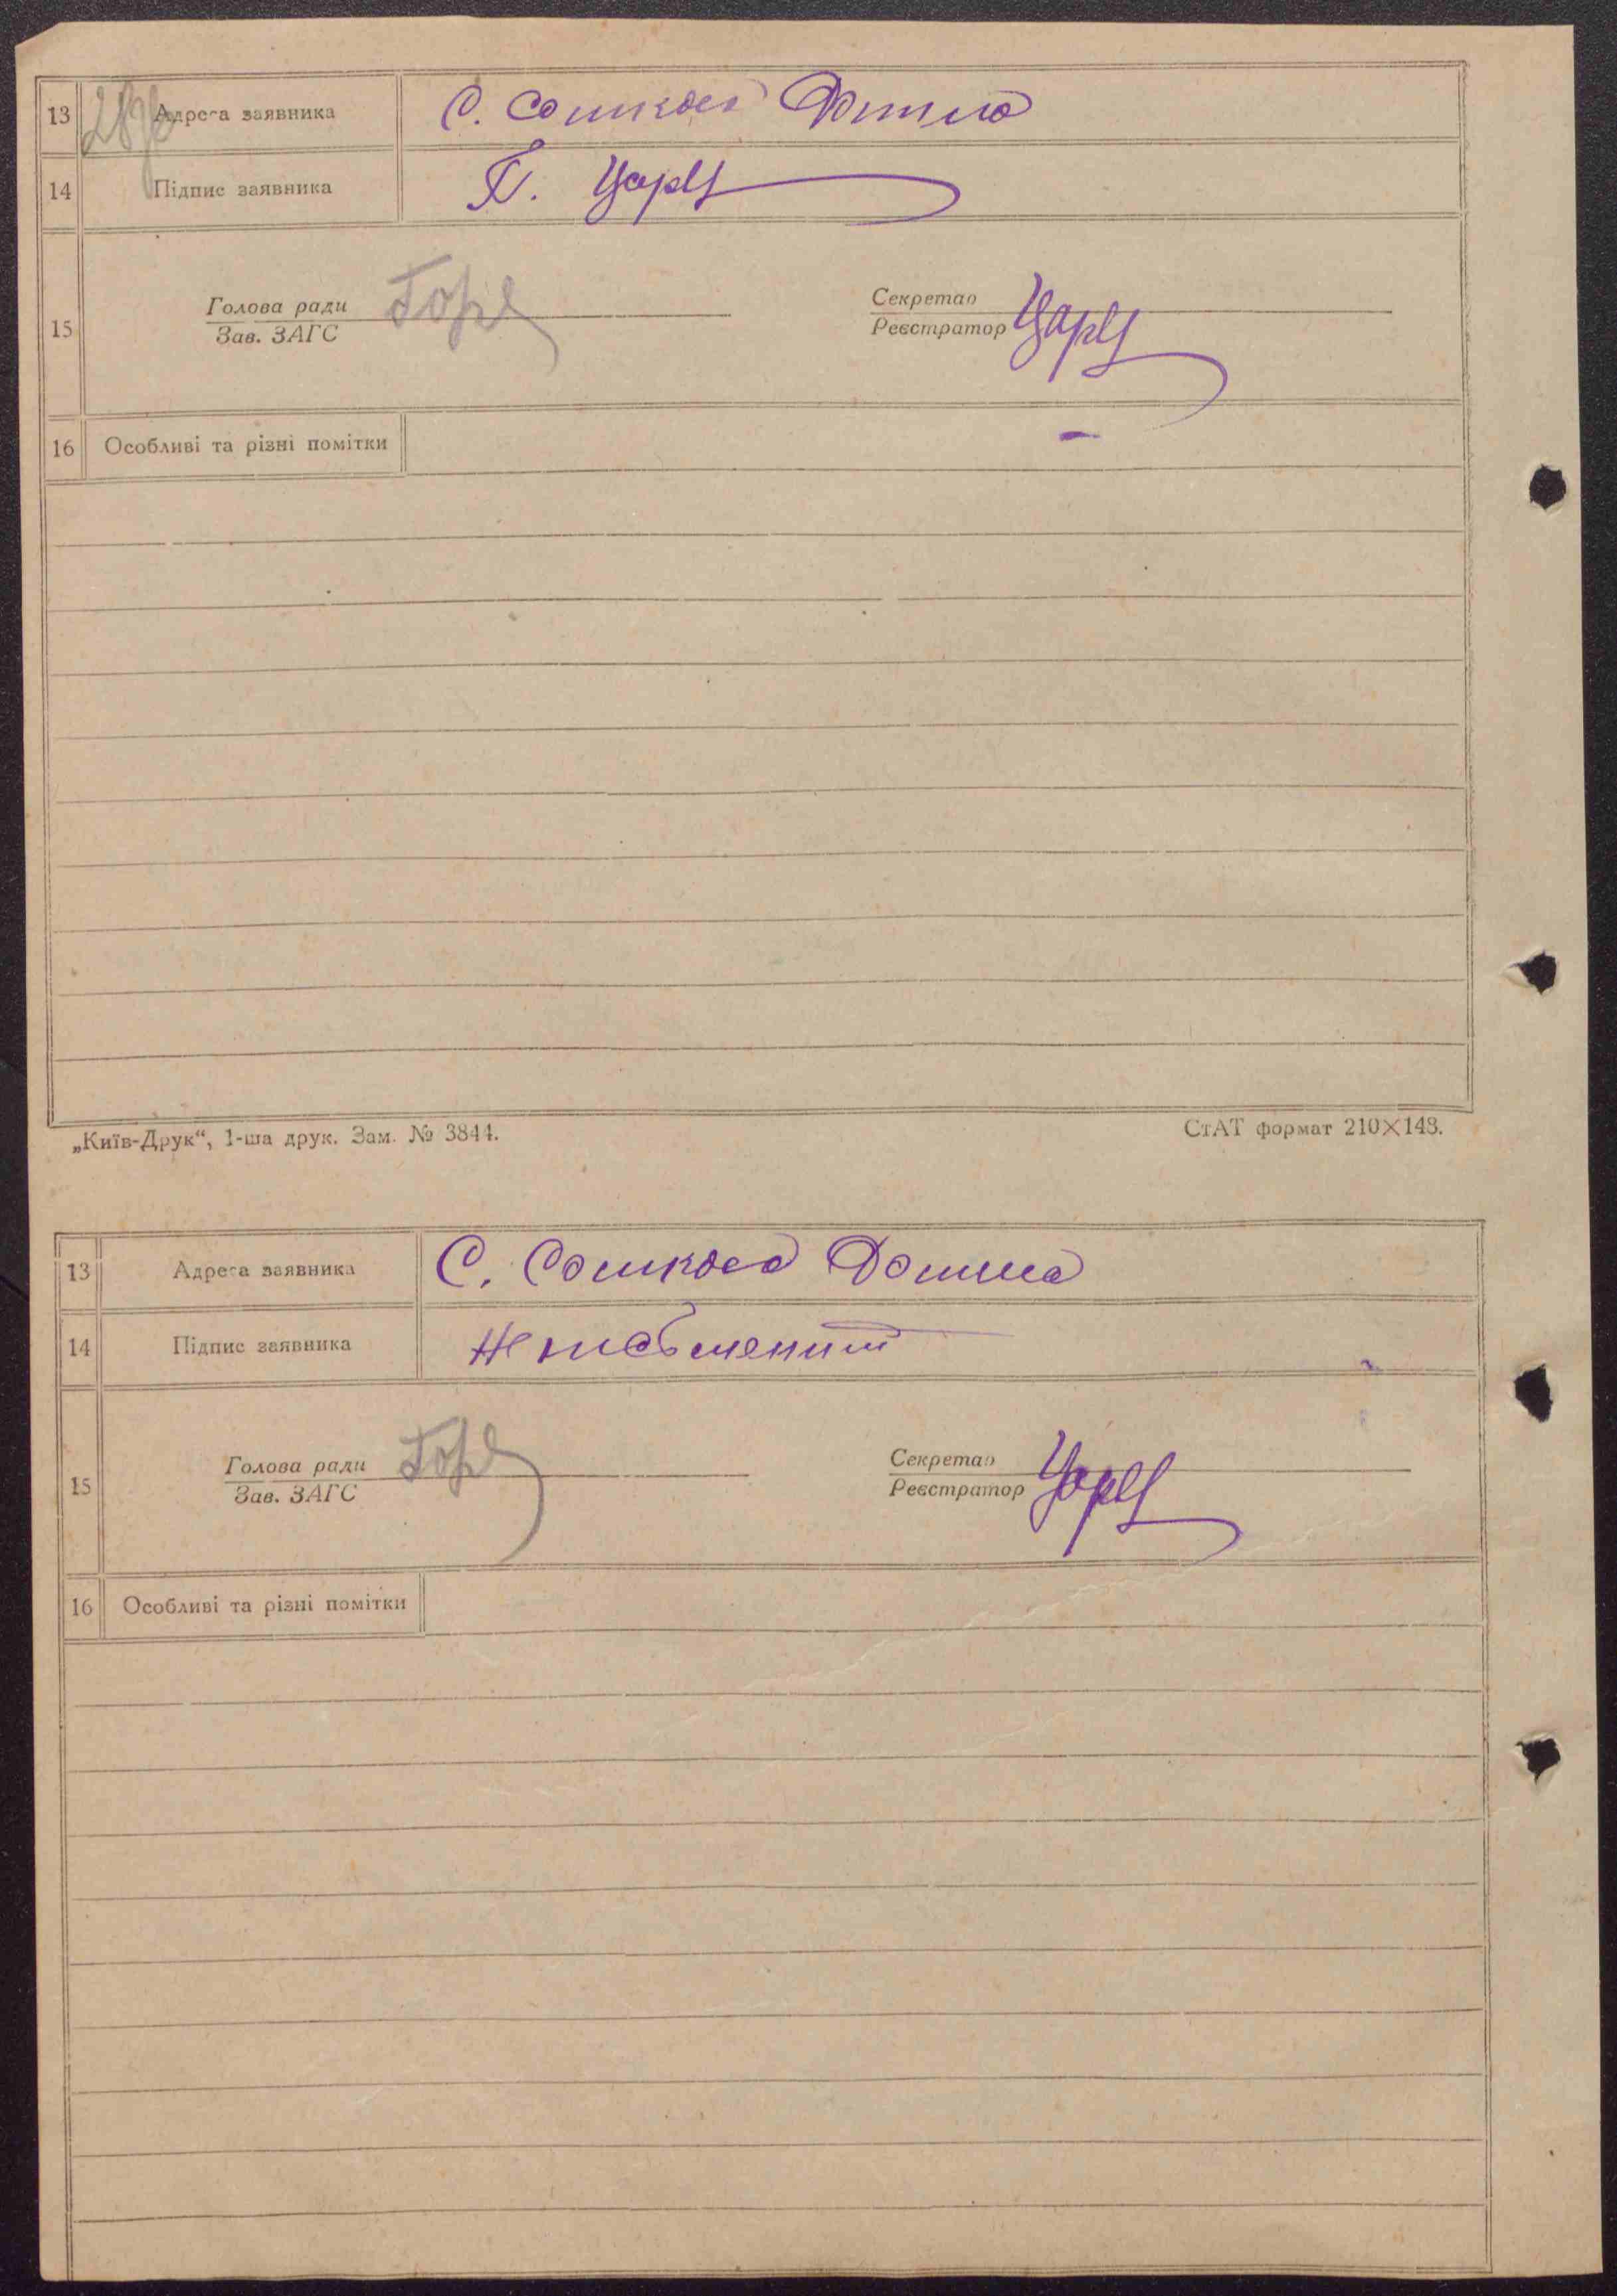 13 Адреса заявника С. Сошкова Долина
14 Підпис заявника П. Царц
15 Голова ради Секретар
Зав. ЗАГС Реєстратор Царц
16 Особливі та різні помітки —
„Київ-Друк“, 1-ша друк. Зам. № 3844. СтАТ формат 210×148.
13 Адреса заявника С. Сошкова Долина
14 Підпис заявника Неписьменит
15 Голова ради Секретар
Зав. ЗАГС Реєстратор Царц
16 Особливі та різні помітки